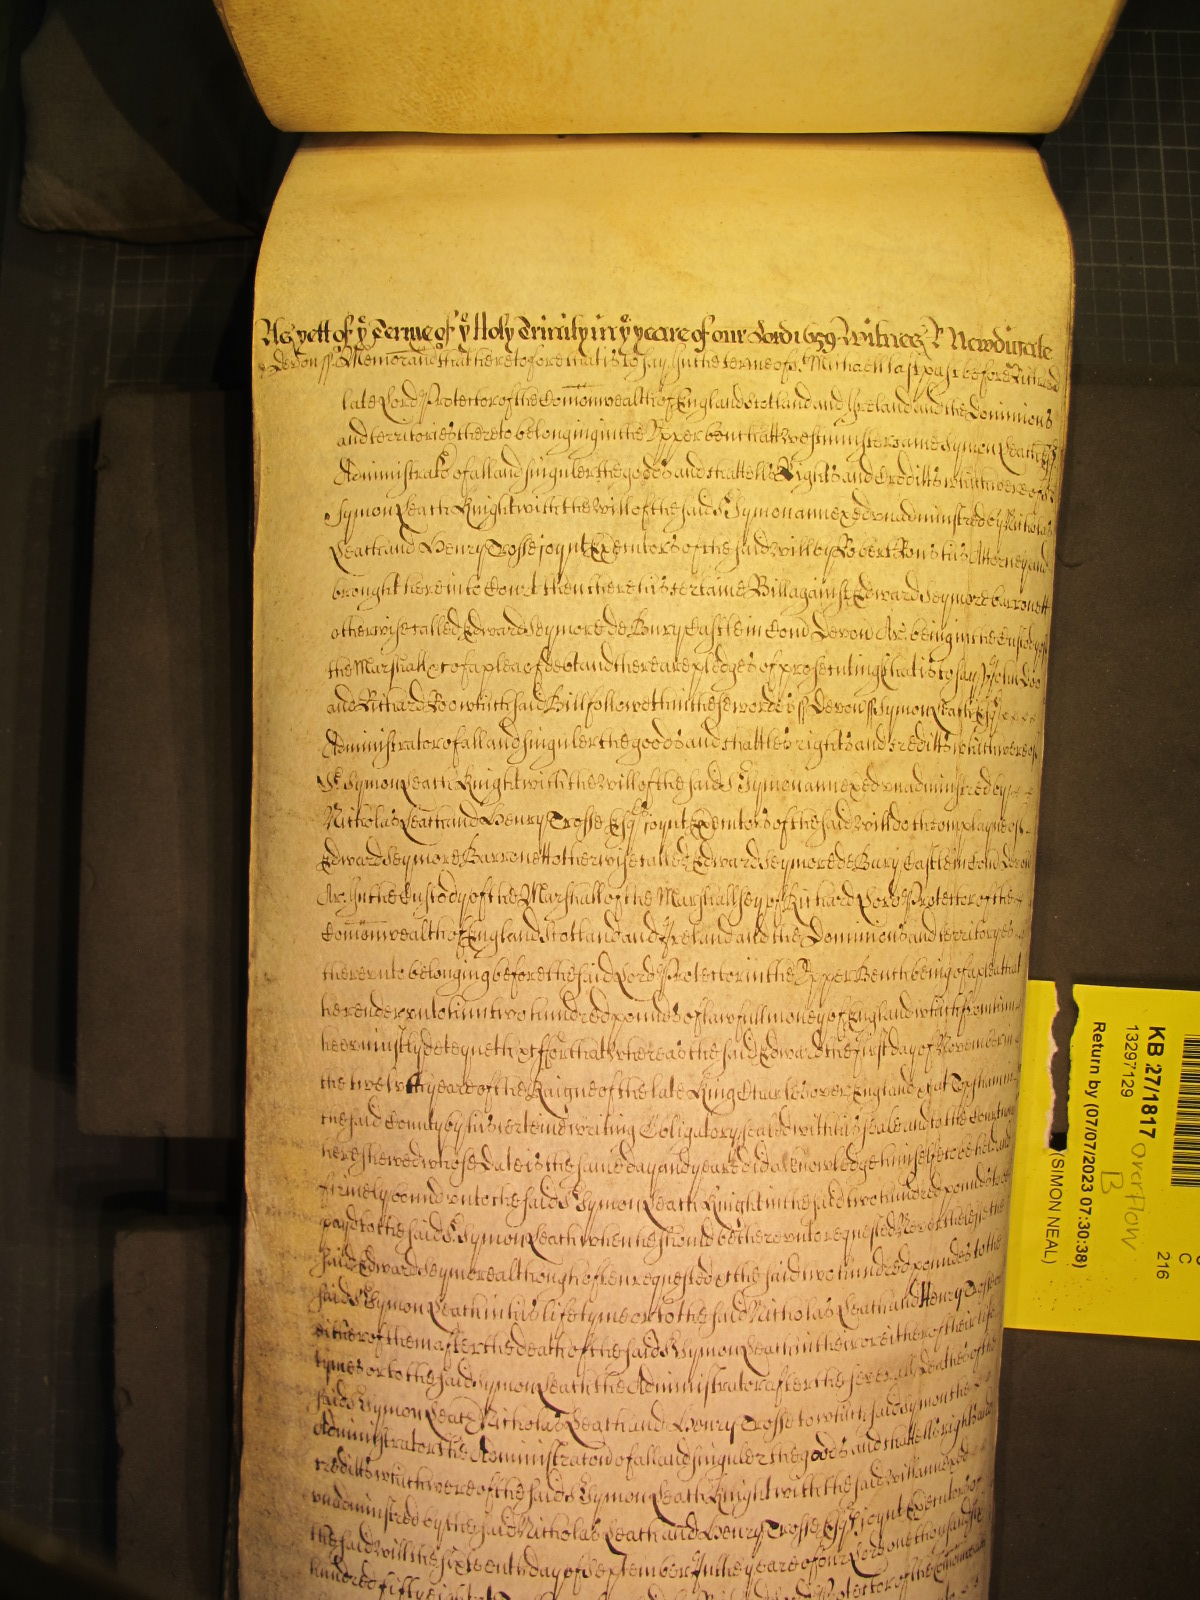 As yett of yᵉ Terme of yᵉ Holy Trinity in yᵉ yeare of our Lord 1659 Witnes R Newdigate
Devon ss Memorand that heretofore that is to say In the terme of St Michaell last past before Richard
late Lord Protector of the Comonwealth of England Scotland and Ireland and the Dominions
and territories thereto belonging in the Upper bench att Westminster came Symon Leach Esqr
Administrator of all and singuler the goods and chattells Rights and Creditts which were of Sr
Symon Leach Knight with the Will of the said Sr Symon annexed unadministred by Nicholas
Leach and Henry Trosse joynt Executors of the said will by Robert his Attorney and
brought here into Court then there his certaine Bill against Edward Seymore barronett
otherwise called Edward Seymore de Bury Castle in Com Devon Ar. being in the Custody of
the Marshall &c of a plea of debt and there are pledges of prosecuting that is to say John Doo
and Richard Roo which said Bill followeth in these words ss Devon ss Symon Leach Esqr
Administrator of all and singuler the goods and chattles rights and creditts which were of
Sr Symon Leach Knight with the Will of the said Sr Symon annexed unadministred by
Nicholas Leach and Henry Trosse Esqr joynt Executors of the said Will doth complayne of
Edward Seymore Barronett otherwise called Edward Seymore de Bury Castle in Com Devon
Ar. In the Custody of the Marshall of the Marshallsey of Richard Lord Protector of the
Comonwealth of England Scotland and Ireland and the Dominions and territoryes
thereunto belonging before the said Lord Protector in the Upper Bench being of a plea that
he render unto him two hundred pounds of lawfull money of England which from him
hee uniustly deteyneth &c For that Whereas the said Edward the first day of November in
the twelveth yeare of the Raigne of the late King Charles over England &c at Topsham in
the said County by his certeine writing Obligatory sealed with his seale and to the Court now
here shewed whose date is the same day and yeare did acknowledge himselfe to be held and
firmely bound unto the said Sr Symon Leach Knight in the said two hundred pounds to be
payd to the said Sr Symon Leach when he should be thereunto requested Neverthelesse the
said Edward Seymore although often requested &c the said two hundred poundes to the
said Sr Symon Leach in his life tyme or to the said Nicholas Leach and Henry Trosse or
either of them after the death of the said Sr Symon Leach in their or either of their life
tymes or to the said Symon Leach the Administrator after the severall deathes of the
said Sr Symon Leach Nicholas Leach and Henry Trosse to which said Symon the
Administrator the Administracion of all and singuler the goods and chattells rights and
creditts which were of the said Sr Symon Leach Knight with the said Will annexed
unadministred by the said Nicholas Leach and Henry Trosse Esqr joynt Executors of
the said will the sixteenth day of September In the yeare of our Lord one thousand six
hundred fifty eight Protector of the Comonwealth
KB 27/1817
13297129
Return by (07/07/2023 07:30:38)
(SIMON NEAL)
Overflow
B
C
216